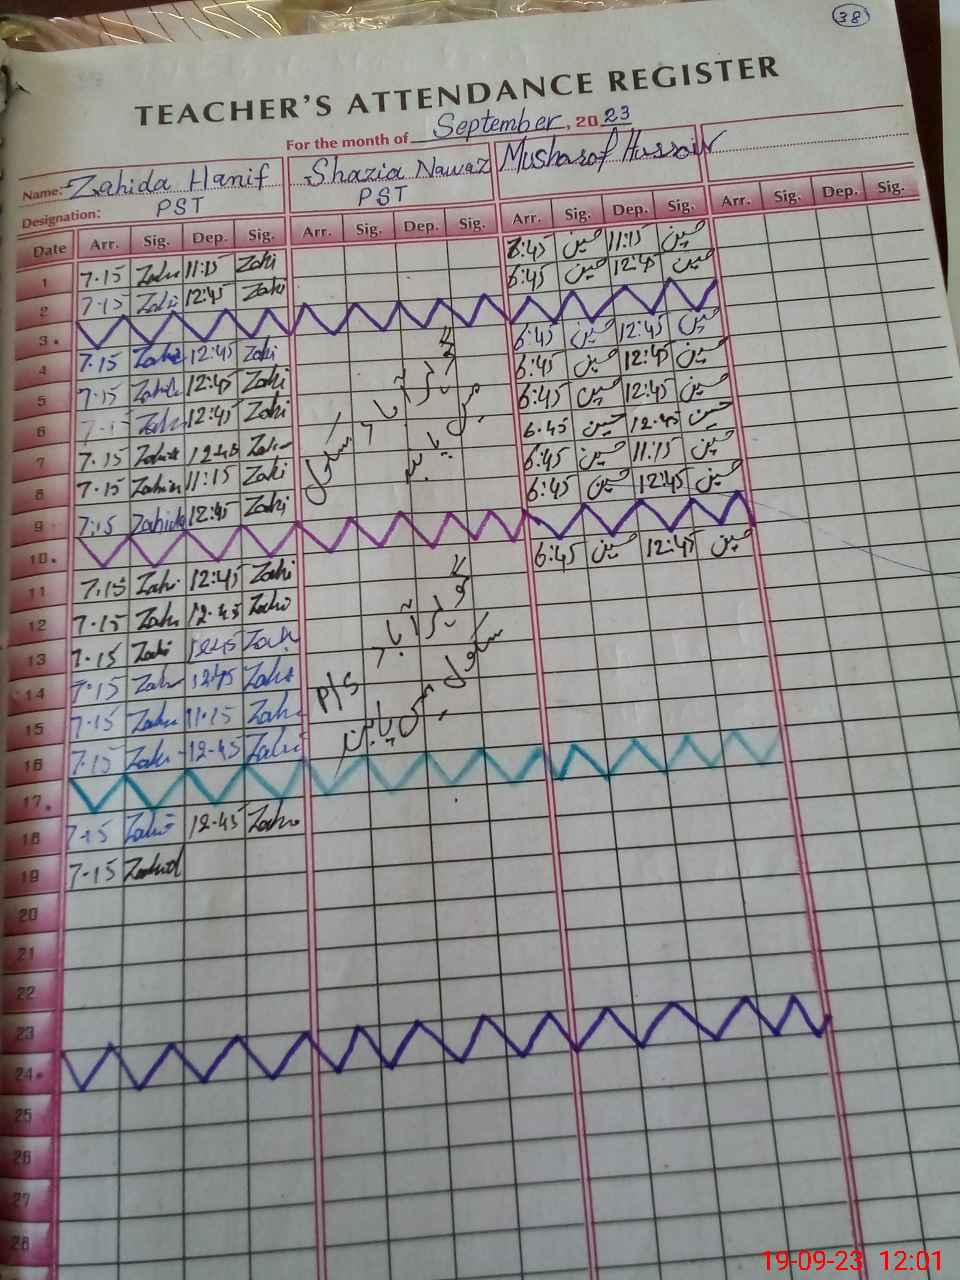 38
TEACHER'S ATTENDANCE REGISTER
For the month of September, 2023
Name: Zahida Hanif Shazia Nawaz Musharaf Hussain
Designation: PST PST
Date Arr. Sig. Dep. Sig. Arr. Sig. Dep. Sig. Arr. Sig. Dep. Sig. Arr. Sig. Dep. Sig.
1 7.15 Zahi 11:15 Zaki 6:45 حسین 11:15 حسین
2 7.15 Zahi 12:45 Zaki 6:45 حسین 12:45 حسین
3.
4 7.15 Zahi 12:45 Zaki 6:45 حسین 12:45 حسین
5 7.15 Zahi 12:45 Zaki 6:45 حسین 12:45 حسین
6 7.15 Zahi 12:45 Zaki 6:45 حسین 12:45 حسین
7 7.15 Zahi 12:45 Zaki 6.45 حسین 12.45 حسین
8 7.15 Zahida 11:15 Zaki 6:45 حسین 11:15 حسین
9 7:15 Zahida 12:45 Zaki 6:45 حسین 12:45 حسین
10.
11 7.15 Zahi 12:45 Zahi 6:45 حسین 12:45 حسین
12 7.15 Zahi 12.45 Zahi
13 7.15 Zahi 12:45 Zahi
14 7.15 Zahi 12:45 Zahi P/S
15 7.15 Zahi 11.15 Zahi
16 7.15 Zahi 12.45 Zahi
17.
18 7.15 Zahi 12.45 Zahi
19 7.15 Zahid
20
21
22
23
24.
25
26
27
28
19-09-23 12:01